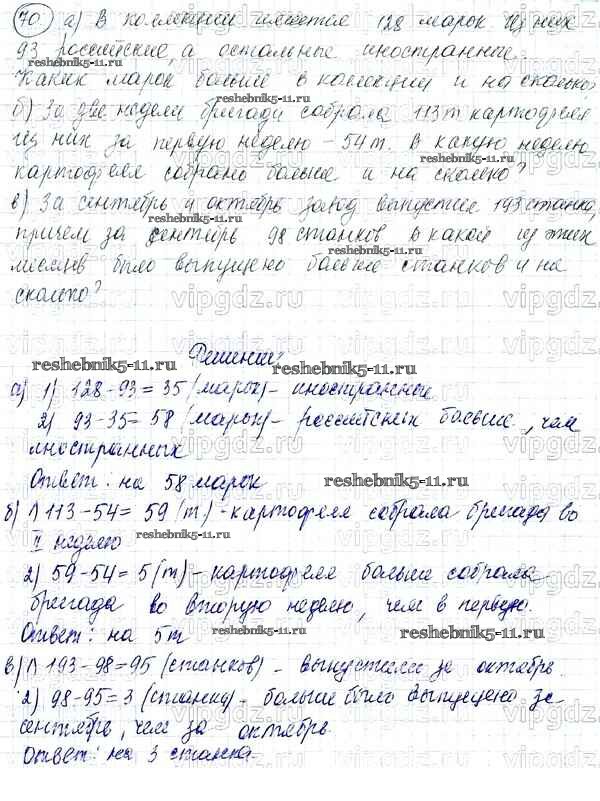 70. а) В коллекции имеется 128 марок. Из них
93 российские, а остальные иностранные.
Каких марок больше в коллекции и на сколько?
reshebnik5-11.ru
б) За две недели бригада собрала 113 т картофеля
Из них за первую неделю – 54 т. В какую неделю
картофеля собрано больше и на сколько?
reshebnik5-11.ru
в) За сентябрь и октябрь завод выпустил 193 станка,
причем за сентябрь 98 станков в какой из этих
месяцев было выпущено больше станков и на
сколько?
vipgdz.ru
Решение:
reshebnik5-11.ru
а) 1) 128-93=35 (марок) - иностранные
2) 93-35=58 (марок) - российских больше, чем
иностранных
Ответ: на 58 марок
reshebnik5-11.ru
б) 1) 113-54=59 (т) - картофеля собрала бригада во
II неделю
reshebnik5-11.ru
2) 59-54=5 (т) - картофеля больше собрала
бригада во вторую неделю, чем в первую.
Ответ: на 5 т
reshebnik5-11.ru
reshebnik5-11.ru
в) 1) 193-98=95 (станков) - выпустили за октябрь.
2) 98-95=3 (станка) - больше было выпущено за
сентябрь, чем за октябрь.
Ответ: на 3 станка.